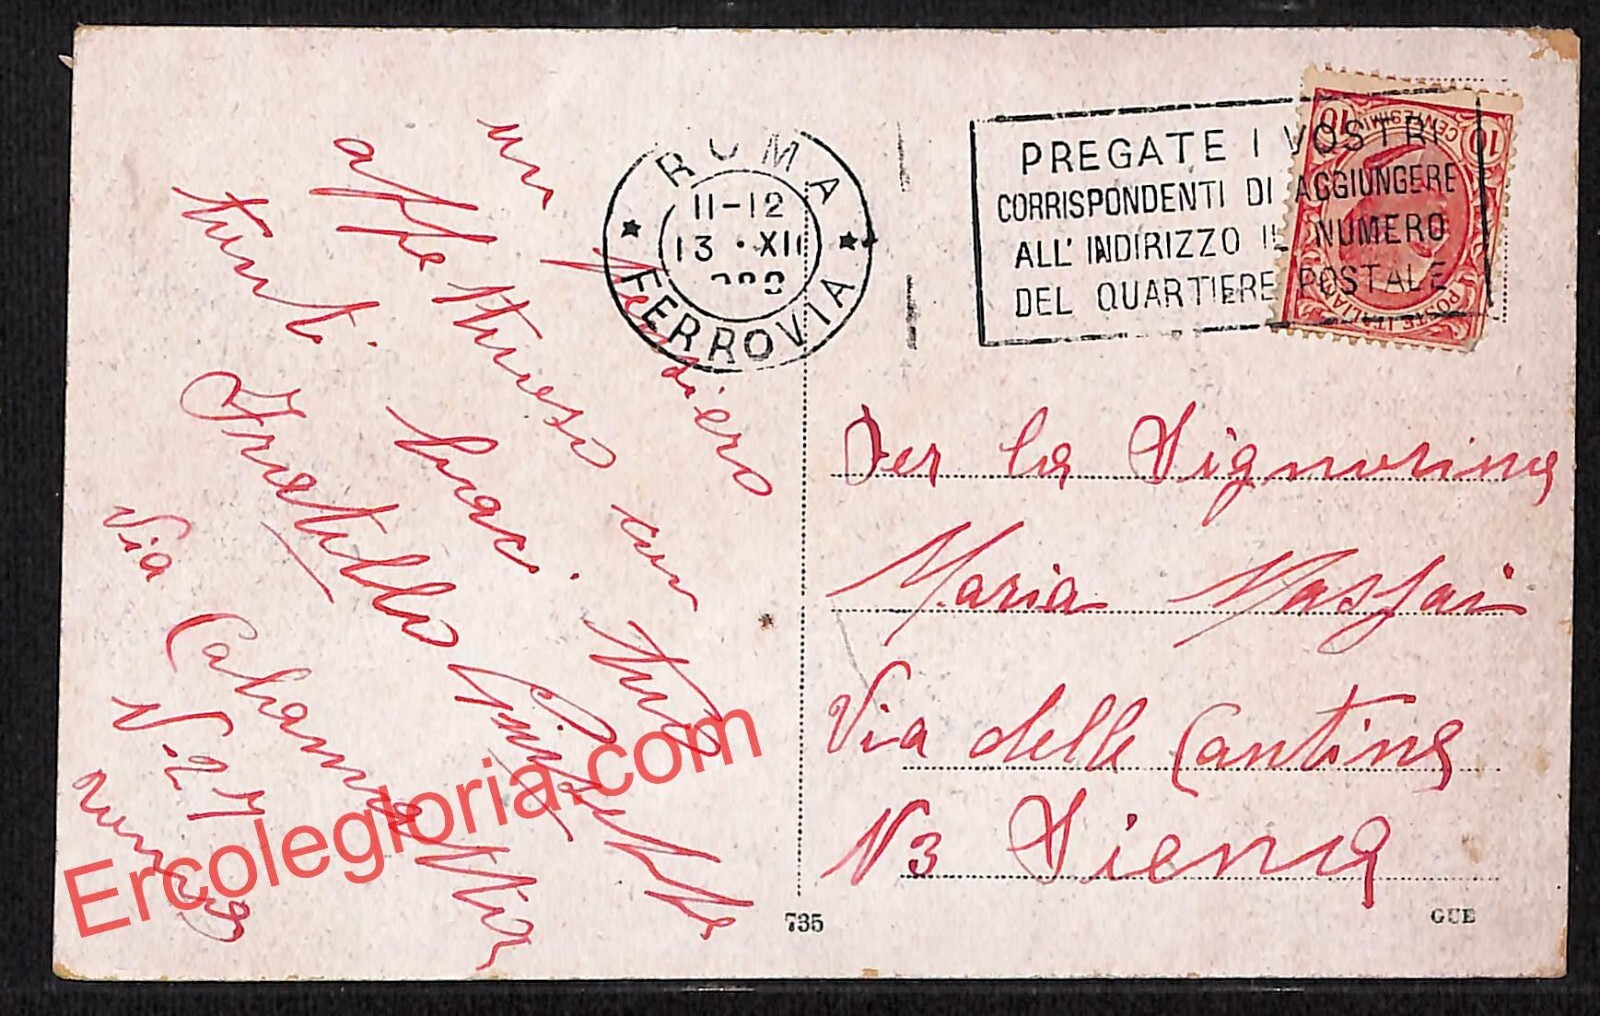 un pensiero
affettuoso con
tanti baci. tuo
Fratello Giuseppe
Via Calamatta
N. 27
ROMA
11-12
13 • XII
FERROVIA
PREGATE I VOSTRI
CORRISPONDENTI DI AGGIUNGERE
ALL' INDIRIZZO IL NUMERO
DEL QUARTIERE POSTALE
10 10
CENTESIMI
POSTE ITALIANE
Per la Signorina
Maria Massai
Via delle Cantine
N3 Siena
735
GUE
Ercolegloria.com